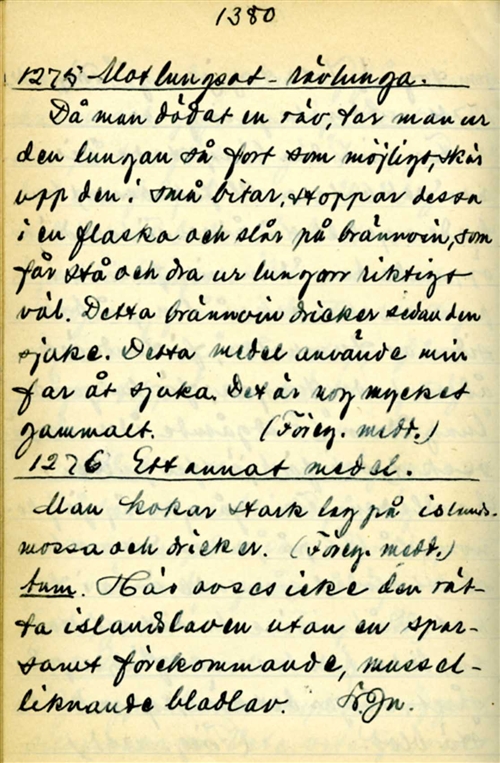 1380
1275 Mot lungsot - rävlunga.
Då man dödat en räv, tar man ur
den lungan så fort som möjligt, skär
upp den i små bitar, stoppar dessa
i en flaska och slår på brännvin, som
får stå och dra ur lungorr riktigt
väl. Detta brännvin dricker sedan den
sjuke. Detta medel använde min
far åt sjuka. Det är nog mycket
gammalt. (Föreg. medd.)
1276 Ett annat medel.
Man kokar stark lag på islands-
mossa och dricker. (Föreg. medd.)
Anm. Här avses icke den rät-
ta islandslaven utan en spar-
samt förekommande, mussel-
liknande bladlav. Fr. Jn.